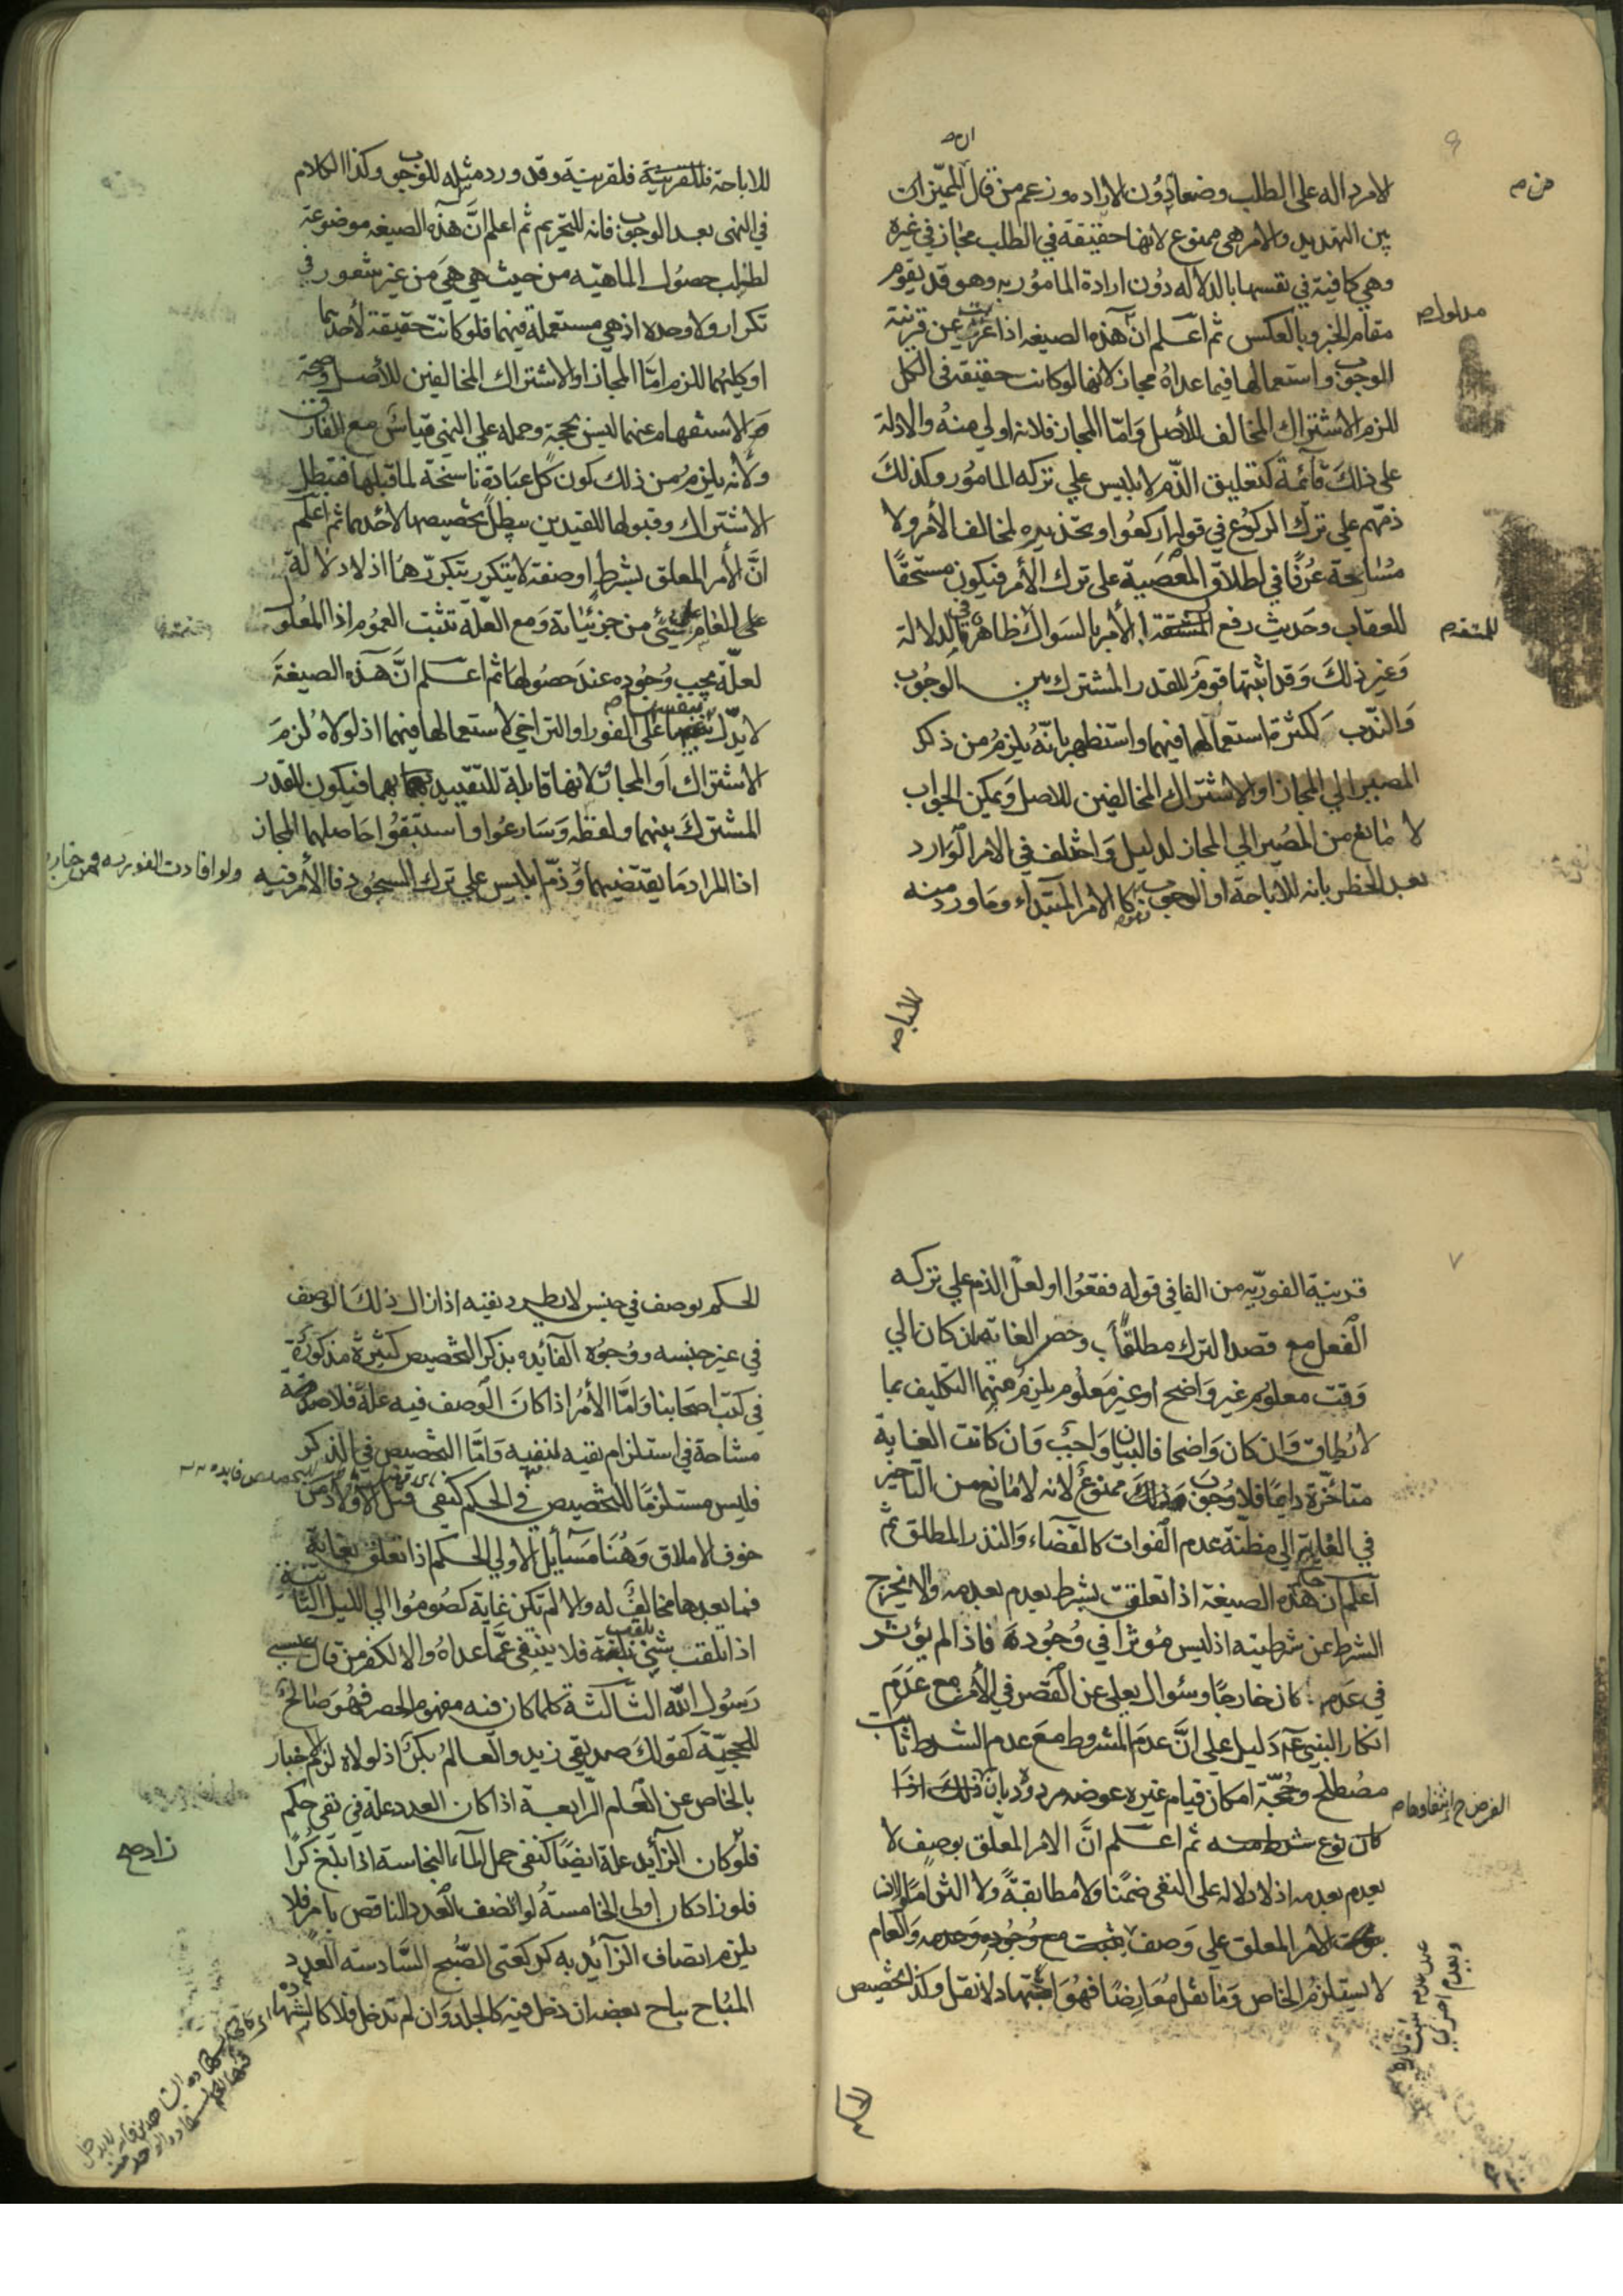 الامر داله على الطلب وضعا دون الاراده وزعم من قال المميز ان
بين التهديد والامر هي ممنوع لانها حقيقة في الطلب مجاز في غيره
وهي كافية في نفسها بالدلاله دون ارادة المامور به وهو قد يقوم
مقام الخبر وبالعكس ثم اعلم ان هذه الصيغه اذا عرت عن قرينة
الوجوب واستعمالها فيما عداه مجاز لانها لو كانت حقيقة في الكل
للزم الاشتراك المخالف للأصل وامّا المجاز فلانه اولي منه والادلة
على ذلك قائمة كتعليق الذم لابليس علي تركه المامور وكذلك
ذمّهم علي ترك الركوع في قوله اركعوا وتحذيره لمخالف الأمر ولا
مشاحة عرفًا في اطلاق المعصية على ترك الأمر فيكون مستحقًا
للعقاب وحديث رفع المشقة بالأمر بالسواك ظاهر في الدلالة
وغير ذلك وقد اثبتها قوم للقدر المشترك بين الوجوب
والندب لكثرة استعمالها فيهما واستظهر بانه يلزم من ذكر
المصير الي المجاز او الاشتراك المخالفين للاصل ويمكن الجواب
لا مانع من المصير الي المجاز لدليل واختلف في الامر الوارد
بعد الحظر بانه للاباحة او الوجوب كالامر المبتداء وما ورد منه
للاباحه
مدلول صح
للمتقدم
للاباحة فللقرينة فلقرينة وقد ورد مثله للوجوب وكذا الكلام
في النهى بعد الوجوب فانه للتحريم ثم اعلم انّ هذه الصيغه موضوعة
لطلب حصول الماهيّه من حيث هي هي من غير شعور في
تكرار ولا وحده اذ هي مستعملة فيهما فلو كانت حقيقة لأحدهما
او كليهما للزم امّا المجاز او الاشتراك المخالفين للأصل وصحة
الاستفهام عنهما ليس بحجة وحمله علي النهي قياس مع الفارق
ولانه يلزم من ذلك كون كل عبادة ناسخة لما قبلها فتبطل
الاشتراك وقبولها للقيدين يبطل تخصيصها لأحدهما ثم اعلم
انّ الأمر المعلق بشرط او صفة لا يتكرر بتكررهما اذ لا دلالة
على العام علي شئ من جزئياته ومع العلّة تثبت العموم اذ المعلول
لعلّة يجب وجوده عند حصولها ثم اعلم انّ هذه الصيغة
لا يدلّ بنفسها على الفور او التراخي لاستعمالها فيهما اذ لولاه لزم
الاشتراك او المجاز لانها قابلة للتقييد بهما فيكون للقدر
المشترك بينهما ولفظه وسارعوا واستبقوا حاصلهما المجاز
اذ المراد ما يقتضيهما وذمّ ابليس علي ترك السجود فالأمر فيه
ولو افادت الفوريه فمن خارج
قرينة الفوريّه من الفا في قوله فقعوا او لعل الذم علي تركه
الفعل مع قصد الترك مطلقًا وحصر الغاية ان كان الي
وقت معلوم غير واضح او غير معلوم يلزم منهما التكليف بما
لا يُطاق وان كان واضحا فالبيان واجب وان كانت الغاية
متأخّرة دايمًا فلا وجوب ممنوع لانه لا مانع من التاخير
في الغاية الي مظنة عدم الفوات كالقضاء والنذر المطلق ثم
اعلم ان هذه الصيغة اذا تعلقت بشرط يعدم بعدمه والا يخرج
الشرط عن شرطيته اذ ليس مؤثرا في وجوده فاذا لم يؤثر
في عدمه كان خارجًا وسئوال يعلى عن القصر في الأمر مع عدم
انكار النبي عم دليل على انّ عدم المشروط مع عدم الشرط ثابت
مصطلح وحجّة امكان قيام غيره عوضه مردود بان ذلك اذا
كان نوع شرط منه ثم اعلم انّ الامر المعلّق بوصف لا
يعدم بعدمه اذ لا دلاله على النفي ضمنًا ولا مطابقةً ولا التزامًا
الامر المعلق علي وصف يثبت مع وجوده وعدمه والعام
لا يستلزم الخاص وما نقل مُعارضًا فهو اجتهاد لا نقل وكذا تخصيص
الحكم بوصف في جنس لا يطرد نفيه اذا زال ذلك الوصف
في غير جنسه ووجوه الفائده بذكر التخصيص كثيرة مذكورة
في كتب اصحابنا وامّا الأمر اذا كان الوصف فيه علة فلا
مشاحة في استلزام نفيه لنفيه وامّا التخصيص في الذكر
فليس مستلزمًا للتخصيص في الحكم كنفي قتل الاولاد من
خوف الاملاق وهنا مسآئل الاولي الحكم اذا تعلق بغاية
فما بعدها مخالف له والا لم تكن غاية كصوموا الي الليل الثانية
اذا تلقب شئ بلقب فلا ينتفي عمّا عداه والا لكفر من قال عيسي
رسول الله الثالثة كلما كان فيه مفهوم الحصر فهو صالح
للحجيّة كقولك صديقي زيد والعالم بكر اذ لولاه لزم الاخبار
بالخاص عن العام الرابعة اذا كان العدد علة في نفي حكم
فلو كان الزائد علة ايضًا كنفي حمل الماء النجاسة اذا بلغ كرًا
فلو زاد كان اولى الخامسة لو اتصف العدد الناقص بامر فلا
يلزم اتصاف الزآئد به كركعتى الصبح السّادسة العدد
المباح يباح بعضه ان دخل فيه كالجلد وان لم تدخل فلا كالشهادة
زاد صح